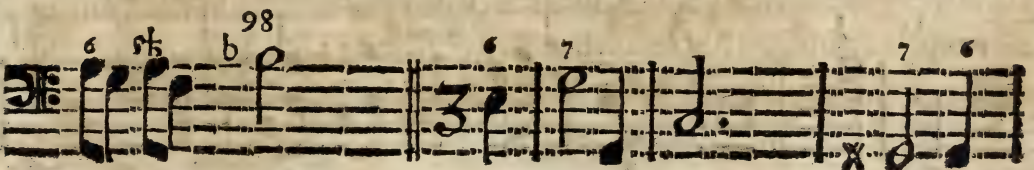 98
6 b 6 7 7 6
3